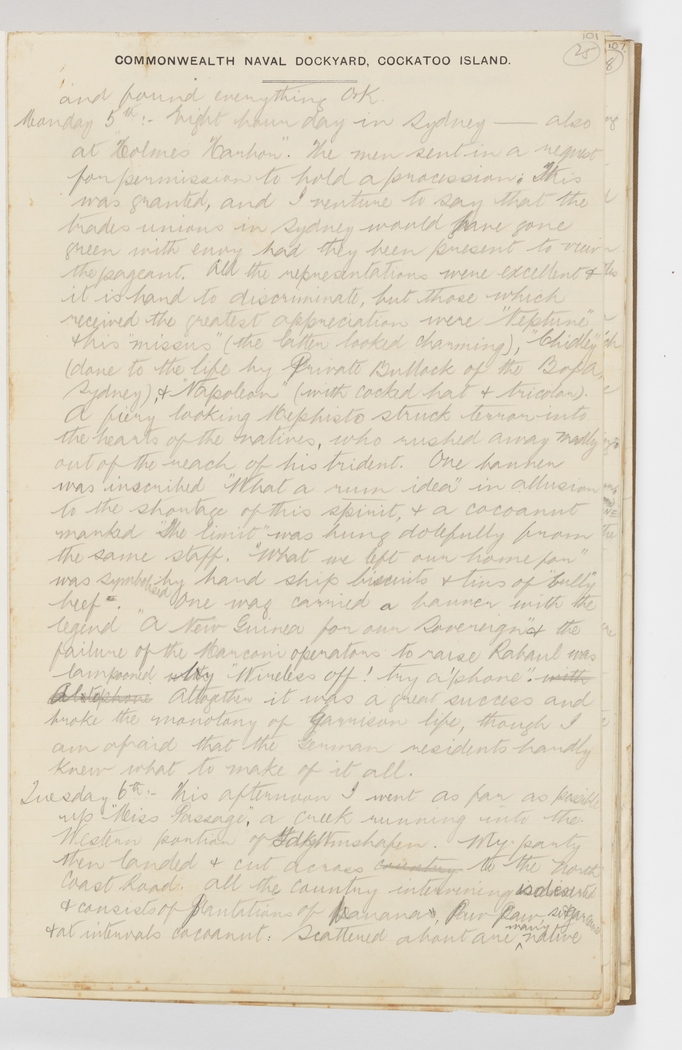 101
25
COMMONWEALTH NAVAL DOCKYARD, COCKATOO ISLAND.
and found everything O.K.
Monday 5th:- Eight hour day in Sydney — also
at "Holmes Harbon". The men sent in a request
for permission to hold a procession. This
was granted, and I venture to say that the
trades unions in Sydney would have gone
green with envy had they been present to view
the pageant. All the representations were excellent &
it is hard to discriminate, but those which
received the greatest appreciation were "Neptune"
& his missus" (the latter looked charming), "Chidley"
(done to the life by Private Bullock of the
Sydney) & "Napoleon" (with cocked hat & tricolor).
A fiery looking Mephisto struck terror into
the hearts of the natives, who rushed away madly
out of the reach of his trident. One banner
was inscribed "What a rum idea" in allusion
to the shortage of this spirit, & a cocoanut
marked "The limit" was hung dolefully from
the same staff. "What we left our home for"
was symbolised by hard ship biscuits & tins of "bully"
beef. One wag carried a banner with the
legend "A New Guinea for our Sovereign" & the
failure of the Marconi operators to raise Rabaul was
lampooned by "Wireless off! try a 'phone". with
Altogether it was a great success and
broke the monotony of garrison life, though I
am afraid that the German residents hardly
knew what to make of it all.
Tuesday 6th:- This afternoon I went as far as possible
up "Miss Passage", a creek running into the
Western portion of . My party
then landed & cut across country to the North
Coast Road. All the country intervening is deserted
& consists of plantations of bananas, Paw Paw,
& at intervals cocoanut. Scattered about are many native